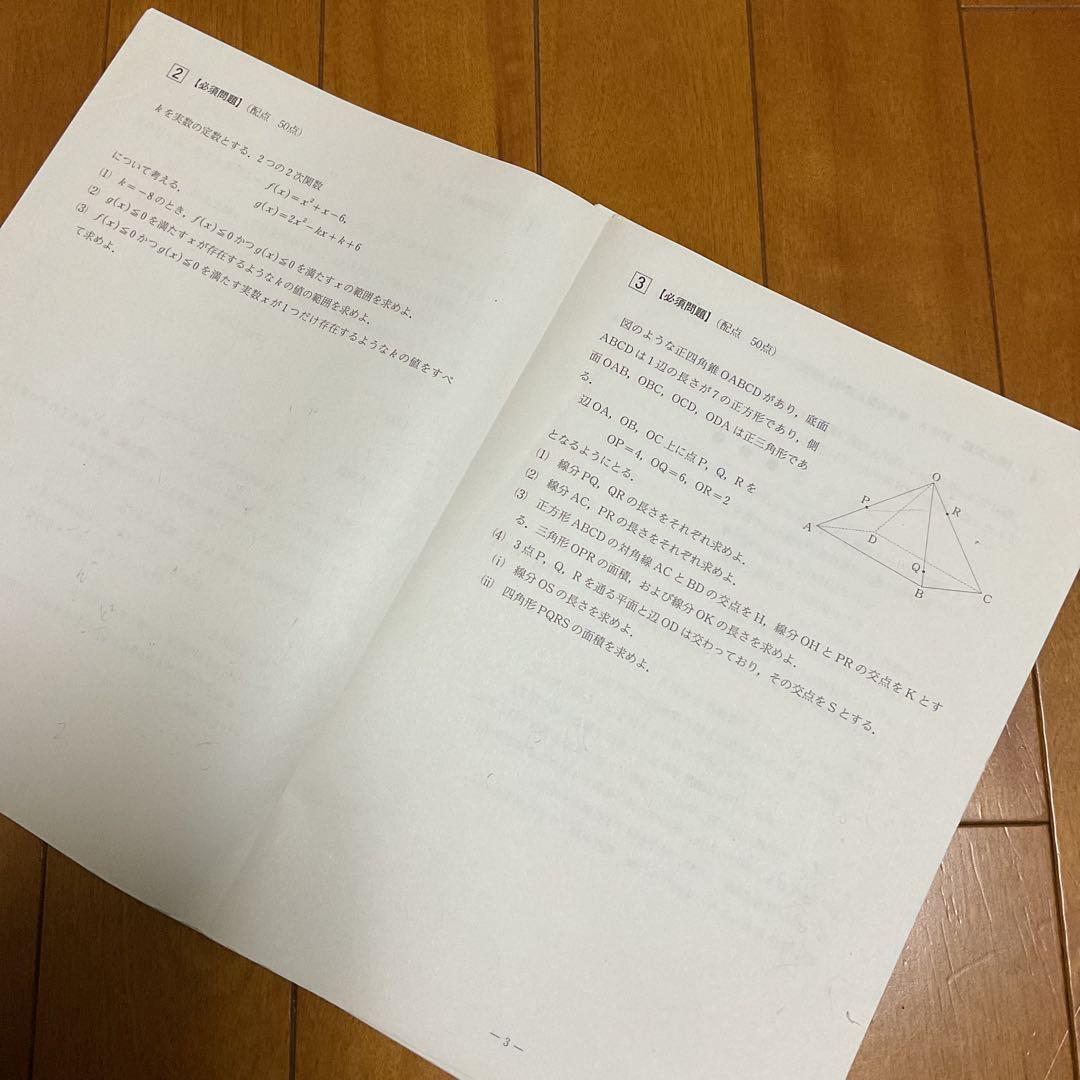 2 【必須問題】(配点 50点)
kを実数の定数とする．2つの2次関数
f(x)=x²+x−6,
g(x)=2x²−kx+k+6
について考える．
(1) k=−8のとき，f(x)≦0かつg(x)≦0を満たすxの範囲を求めよ．
(2) g(x)≦0を満たすxが存在するようなkの値の範囲を求めよ．
(3) f(x)≦0かつg(x)≦0を満たす実数xが1つだけ存在するようなkの値をすべ
て求めよ．
3 【必須問題】(配点 50点)
図のような正四角錐OABCDがあり，底面
ABCDは1辺の長さが7の正方形であり，側
面OAB，OBC，OCD，ODAは正三角形であ
る．
辺OA，OB，OC上に点P，Q，Rを
OP=4，OQ=6，OR=2
となるようにとる．
(1) 線分PQ，QRの長さをそれぞれ求めよ．
(2) 線分AC，PRの長さをそれぞれ求めよ．
(3) 正方形ABCDの対角線ACとBDの交点をH，線分OHとPRの交点をKとす
る．三角形OPRの面積，および線分OKの長さを求めよ．
(4) 3点P，Q，Rを通る平面と辺ODは交わっており，その交点をSとする．
(i) 線分OSの長さを求めよ．
(ii) 四角形PQRSの面積を求めよ．
O
P
R
A
D
Q
B
C
－3－